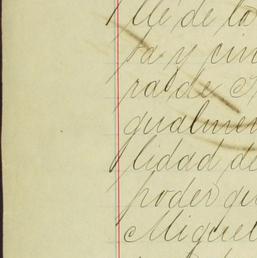 lle de la
ta y cin
ral de
gualmen
lidad de
poder qu
Miguel